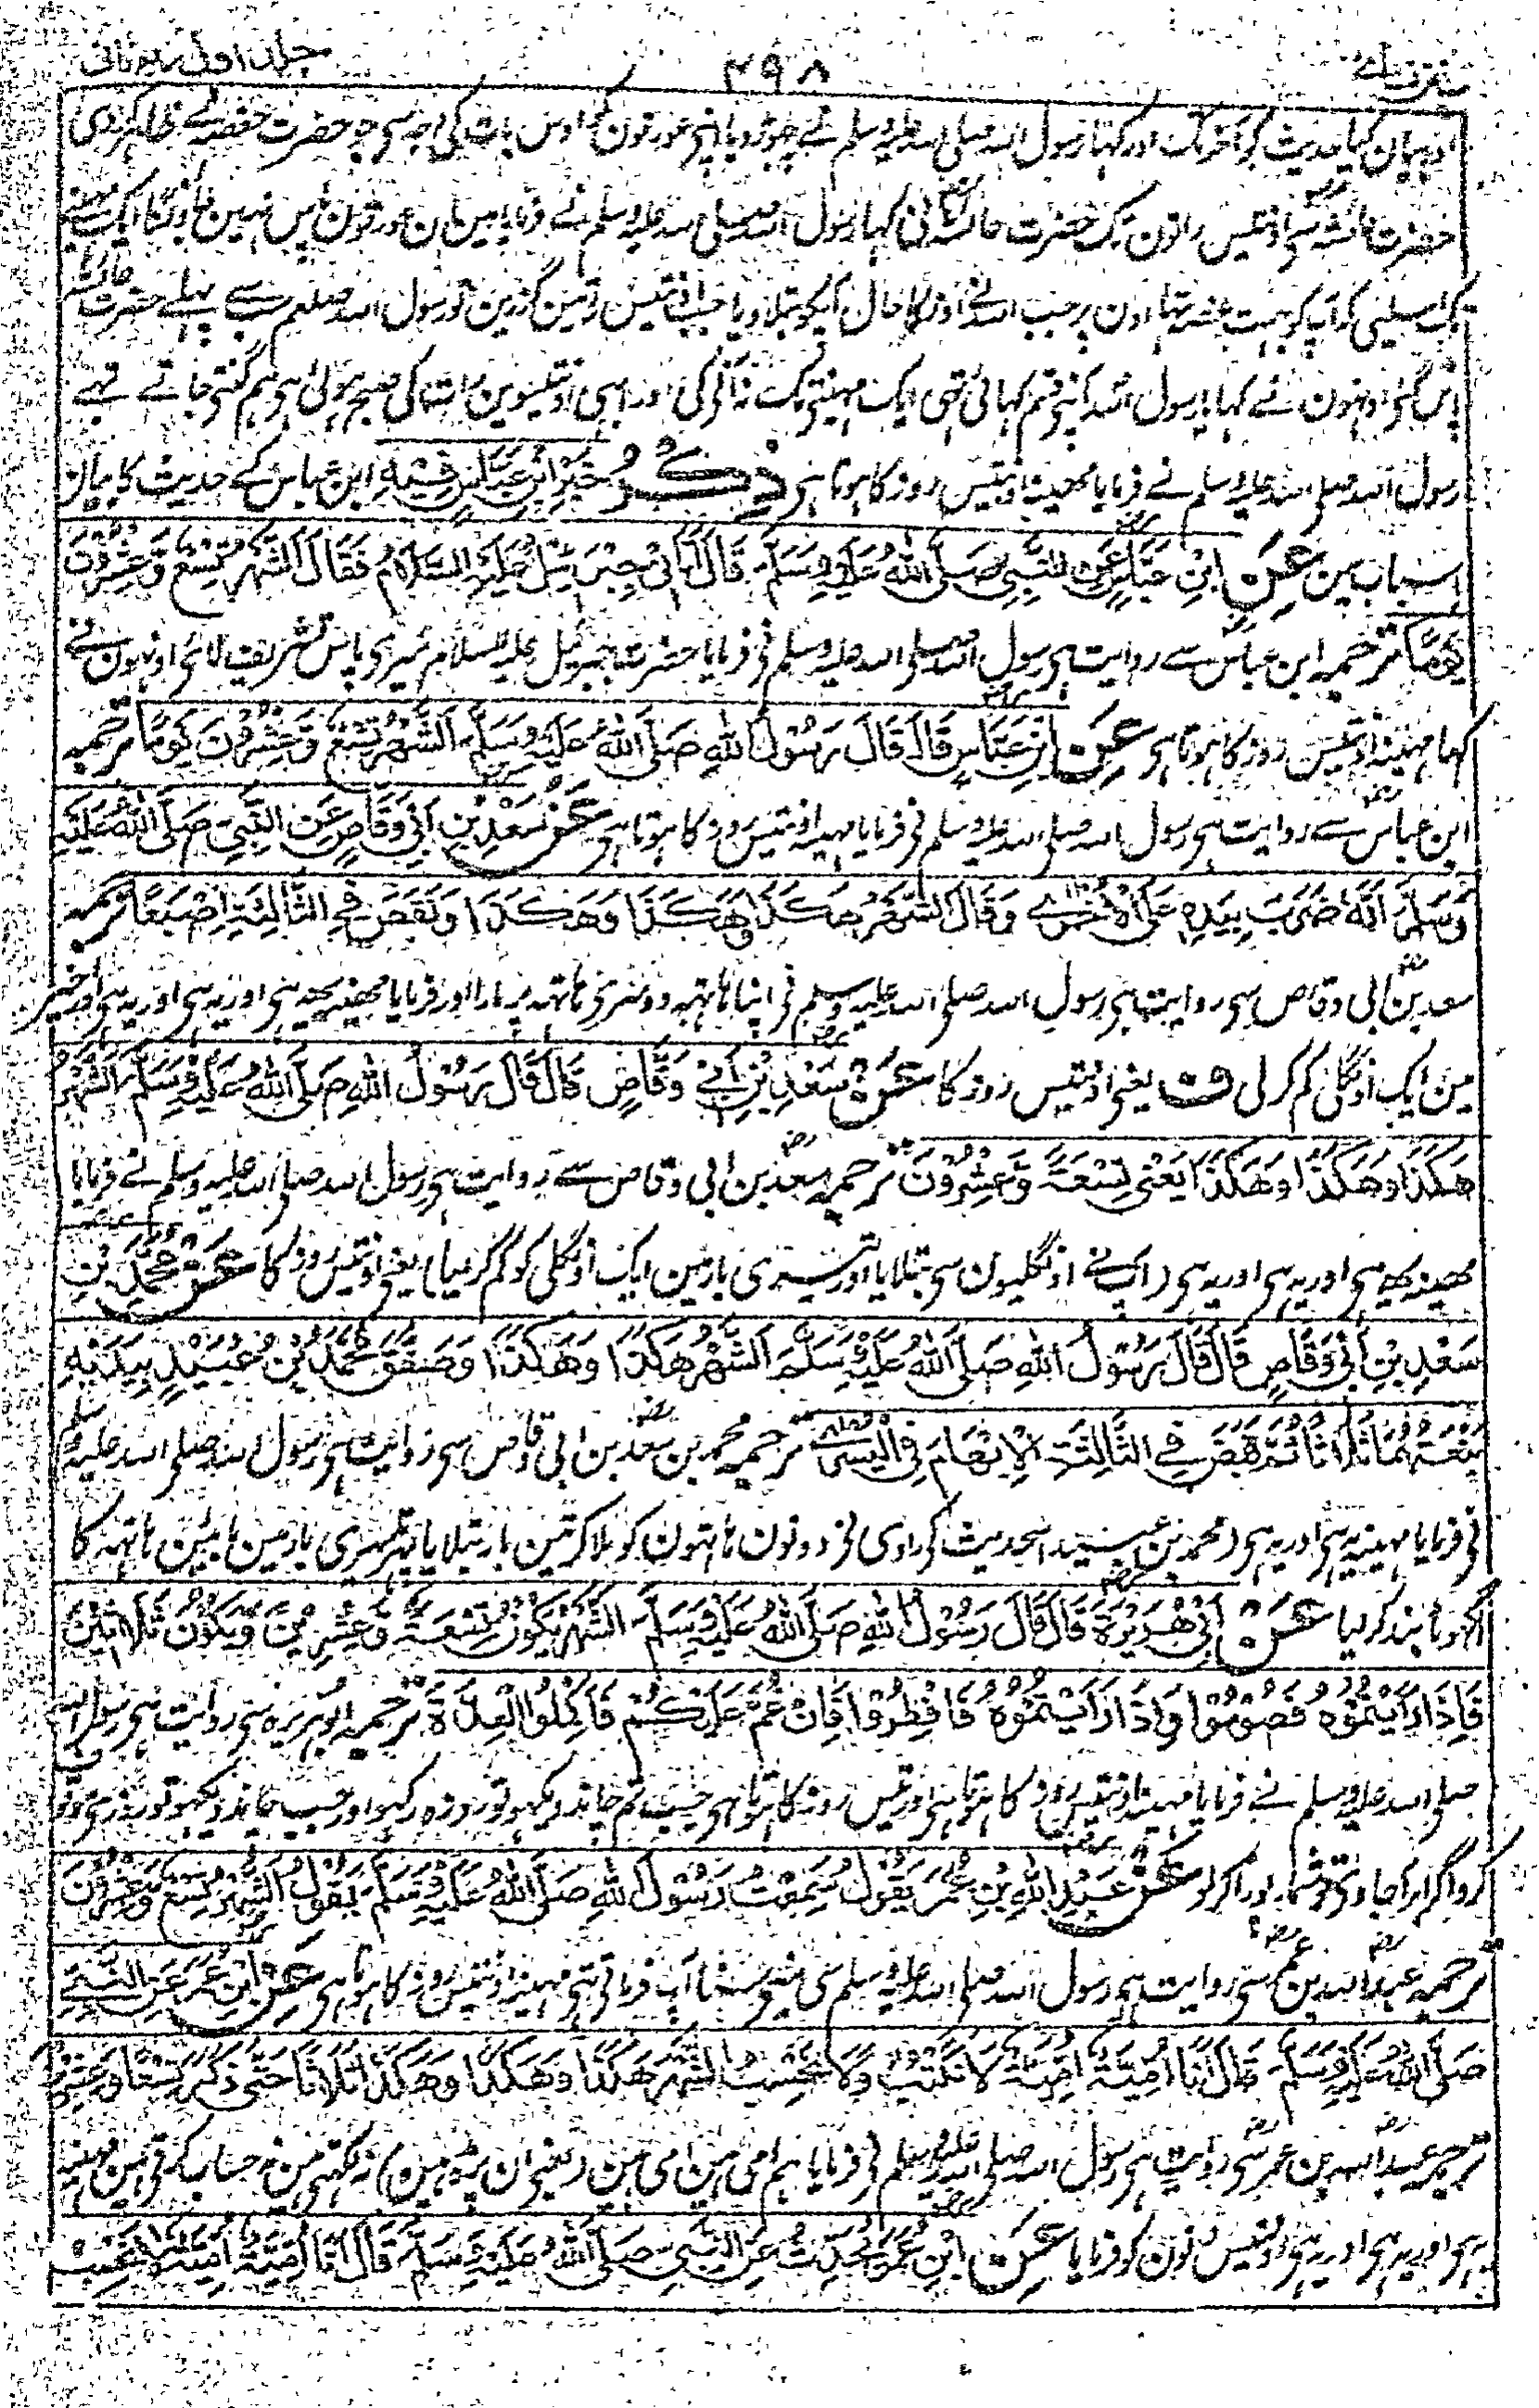 ۴۹۸
اور بیان کیا حدیث کو آخر تک اور کہا رسول اللہ صلی اللہ علیہ وسلم نے چھوڑ دیا اپنی عورتون کو اوس بات کی وجہ سی جو حضرت حفصہ نے ظاہر کر دی
حضرت عائشہ سی اونتیس راتون تک حضرت عائشہ نی کہا رسول اللہ صلی اللہ علیہ وسلم نے فرمایا مین ان عورتون پاس نہین جاؤنگا ایک مہینے
تک اسلیی کہ آپ کو بہت غصہ تہا اون پر جب اللہ نے اونکا حال آپکو بتلا دیا جب اونتیس راتین گزرین تو رسول اللہ صلعم سب سے پہلے حضرت عائشہ
پاس گئی اونہون نے کہا یا رسول اللہ آپنی قسم کہائی تہی ایک مہینی تک نہ آنی کی اور ابہی اونتیسوین رات کی صبح ہوئی ہی ہم گنتی جاتے تہے
رسول اللہ صلی اللہ علیہ وسلم نے فرمایا مہینہ اونتیس روز کا ہوتا ہی ذِکْرُ خَبَرِ ابْنِ عَبَّاسٍ فِیْہِ ابن عباس کے حدیث کا بیان
اسباب مین عَنِ ابْنِ عَبَّاسٍ عَنِ النَّبِیِّ صَلَّی اللہُ عَلَیْہِ وَسَلَّمَ قَالَ اَتَانِیْ جِبْرَئِیْلُ عَلَیْہِ السَّلَامُ فَقَالَ الشَّہْرُ تِسْعٌ وَّعِشْرُوْنَ
یَوْمًا ترجمہ ابن عباس سے روایت ہی رسول اللہ صلی اللہ علیہ وسلم نی فرمایا حضرت جبرئیل علیہ السلام میری پاس تشریف لائی اونہون نے
کہا مہینہ اونتیس روز کا ہوتا ہی عَنِ ابْنِ عَبَّاسٍ قَالَ قَالَ رَسُوْلُ اللہِ صَلَّی اللہُ عَلَیْہِ وَسَلَّمَ اَلشَّہْرُ تِسْعٌ وَّعِشْرُوْنَ یَوْمًا ترجمہ
ابن عباس سے روایت ہی رسول اللہ صلی اللہ علیہ وسلم نی فرمایا مہینہ اونتیس روز کا ہوتا ہی عَنْ سَعْدِ بْنِ اَبِیْ وَقَّاصٍ عَنِ النَّبِیِّ صَلَّی اللہُ عَلَیْہِ
وَسَلَّمَ اَنَّہُ ضَرَبَ بِیَدِہٖ عَلَی الْاُخْرٰی وَقَالَ الشَّہْرُ ہٰکَذَا وَہٰکَذَا وَہٰکَذَا وَنَقَصَ فِی الثَّالِثَۃِ اِصْبَعًا ترجمہ
سعد بن ابی وقاص سی روایت ہی رسول اللہ صلی اللہ علیہ وسلم نی اپنا ہاتہہ دوسری ہاتہہ پر مارا اور فرمایا مہینہ یہہ ہی اور یہ ہی اور یہ ہی اور اخیر
مین ایک اونگلی کم کر لی ف یعنی اونتیس روز کا عَنْ سَعْدِ بْنِ اَبِیْ وَقَّاصٍ قَالَ قَالَ رَسُوْلُ اللہِ صَلَّی اللہُ عَلَیْہِ وَسَلَّمَ الشَّہْرُ
ہٰکَذَا وَہٰکَذَا وَہٰکَذَا یَعْنِیْ تِسْعَۃً وَّعِشْرُوْنَ ترجمہ سعد بن ابی وقاص سے روایت ہی رسول اللہ صلی اللہ علیہ وسلم نے فرمایا
مہینہ یہہ ہی اور یہ ہی اور یہ ہی (آپ نے اونگلیون سی بتلایا اور تیسری بار مین ایک اونگلی کو کم کر لیا) یعنی اونتیس روز کا عَنْ مُحَمَّدِ بْنِ
سَعْدِ بْنِ اَبِیْ وَقَّاصٍ قَالَ قَالَ رَسُوْلُ اللہِ صَلَّی اللہُ عَلَیْہِ وَسَلَّمَ اَلشَّہْرُ ہٰکَذَا وَہٰکَذَا وَصَفَّقَ مُحَمَّدُ بْنُ عُبَیْدٍ بِیَدَیْہِ
یَنْعَتُہَا ثَلٰثًا ثُمَّ قَبَضَ فِی الثَّالِثَۃِ الْاِبْہَامَ فِی الْیُسْرٰی ترجمہ محمد بن سعد بن ابی وقاص سی روایت ہی رسول اللہ صلی اللہ علیہ وسلم
نی فرمایا مہینہ یہ ہی اور یہ ہی (محمد بن عبید اس حدیث کی راوی نی دونون ہاتہون کو ہلا کر تین بار بتلایا پہر تیسری بار مین بائین ہاتہہ کا
انگوٹہا بند کر لیا عَنْ اَبِیْ ہُرَیْرَۃَ قَالَ قَالَ رَسُوْلُ اللہِ صَلَّی اللہُ عَلَیْہِ وَسَلَّمَ الشَّہْرُ یَکُوْنُ تِسْعَۃً وَّعِشْرِیْنَ وَیَکُوْنُ ثَلَاثِیْنَ
فَاِذَا رَاَیْتُمُوْہُ فَصُوْمُوْا وَاِذَا رَاَیْتُمُوْہُ فَاَفْطِرُوْا فَاِنْ غُمَّ عَلَیْکُمْ فَاَکْمِلُوا الْعِدَّۃَ ترجمہ ابو ہریرہ سی روایت ہی رسول اللہ
صلی اللہ علیہ وسلم نے فرمایا مہینہ اونتیس روز کا ہوتا ہی اور تیس روز کا ہوتا ہی جب تم چاند دیکہو تو روزہ رکہو اور جب چاند دیکہو تو روزی موقوف
کرو اگر ابر آ جاوی تو شمار پورا کر لو عَنْ عَبْدِ اللہِ بْنِ عُمَرَ یَقُوْلُ سَمِعْتُ رَسُوْلَ اللہِ صَلَّی اللہُ عَلَیْہِ وَسَلَّمَ یَقُوْلُ الشَّہْرُ تِسْعٌ وَّعِشْرُوْنَ
ترجمہ عبد اللہ بن عمر سی روایت ہی رسول اللہ صلی اللہ علیہ وسلم سی مینی سنا آپ فرماتی تہی مہینہ اونتیس روز کا ہوتا ہی عَنِ ابْنِ عُمَرَ عَنِ النَّبِیِّ
صَلَّی اللہُ عَلَیْہِ وَسَلَّمَ قَالَ اِنَّا اُمَّۃٌ اُمِّیَّۃٌ لَا نَکْتُبُ وَلَا نَحْسُبُ الشَّہْرَ ہٰکَذَا وَہٰکَذَا وَہٰکَذَا ثَلَاثًا حَتّٰی ذَکَرَ تِسْعًا وَّعِشْرِیْنَ
ترجمہ عبد اللہ بن عمر سی روایت ہی رسول اللہ صلی اللہ علیہ وسلم نی فرمایا ہم امی ہین امی ہین (یعنی ان پڑہ ہین) نہ لکہتی ہین نہ حساب کرتی ہین مہینہ
یہ ہی اور یہ ہی اور یہ ہی اونتیس دنون کو فرمایا عَنِ ابْنِ عُمَرَ یُحَدِّثُ عَنِ النَّبِیِّ صَلَّی اللہُ عَلَیْہِ وَسَلَّمَ قَالَ اِنَّا اُمَّۃٌ اُمِّیَّۃٌ لَا نَحْسُبُ